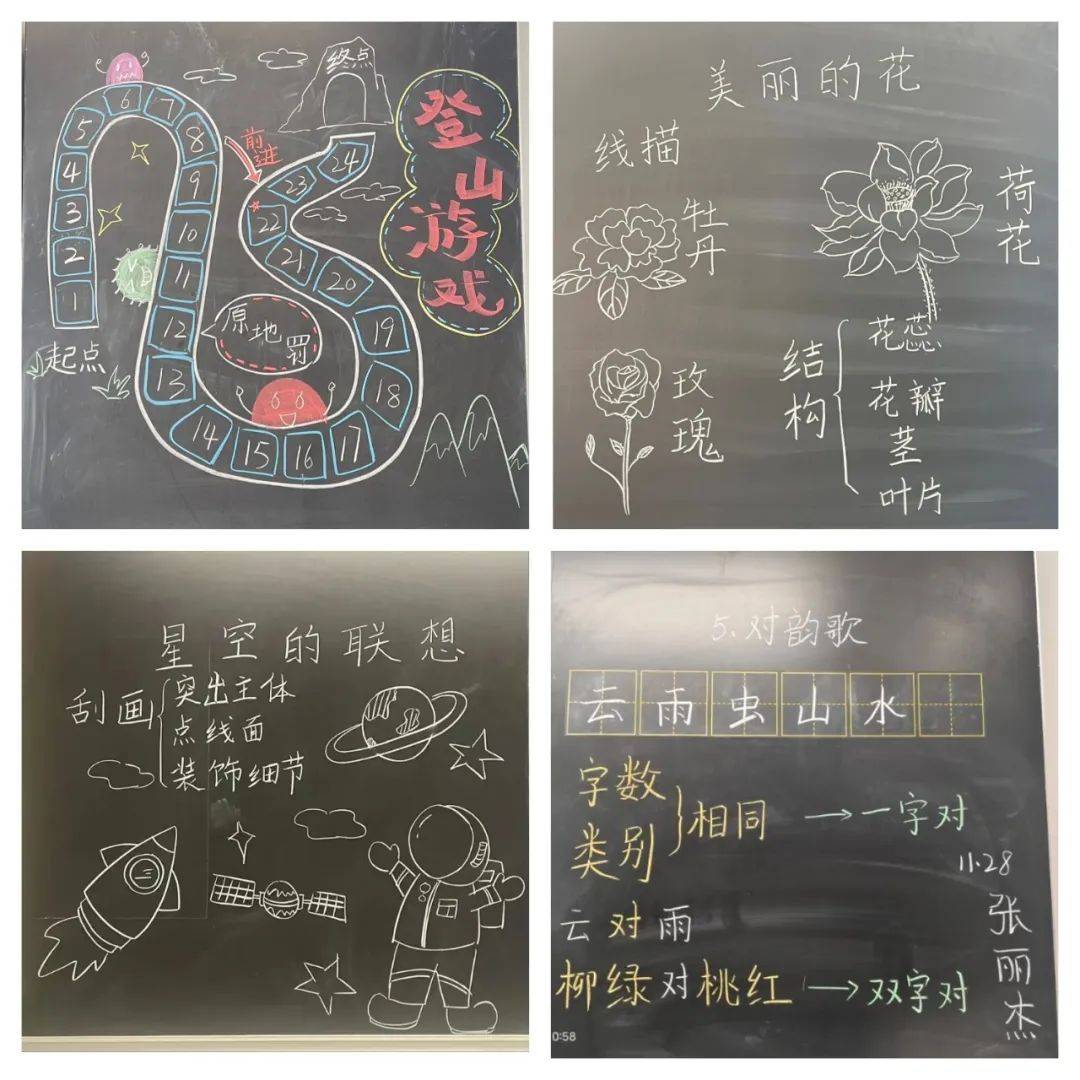 终点
登山游戏
前进
1
2
3
4
5
6
7
8
9
10
11
12
13
14
15
16
17
18
19
20
21
22
23
24
原地
罚
起点
美丽的花
线描
牡丹
荷花
玫瑰
结构
花蕊
花瓣
茎
叶片
星空的联想
刮画
突出主体
点线面
装饰细节
5.对韵歌
云雨虫山水
字数
类别
相同 → 一字对
11.28
张丽杰
云对雨
柳绿对桃红 → 双字对
0:58